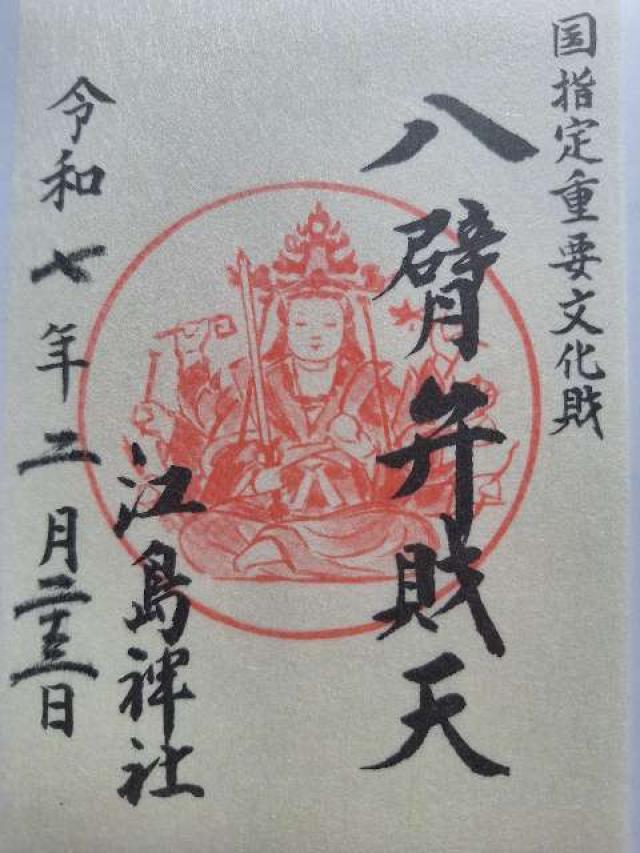 国指定重要文化財
八臂弁財天
江島神社
令和七年二月二十三日